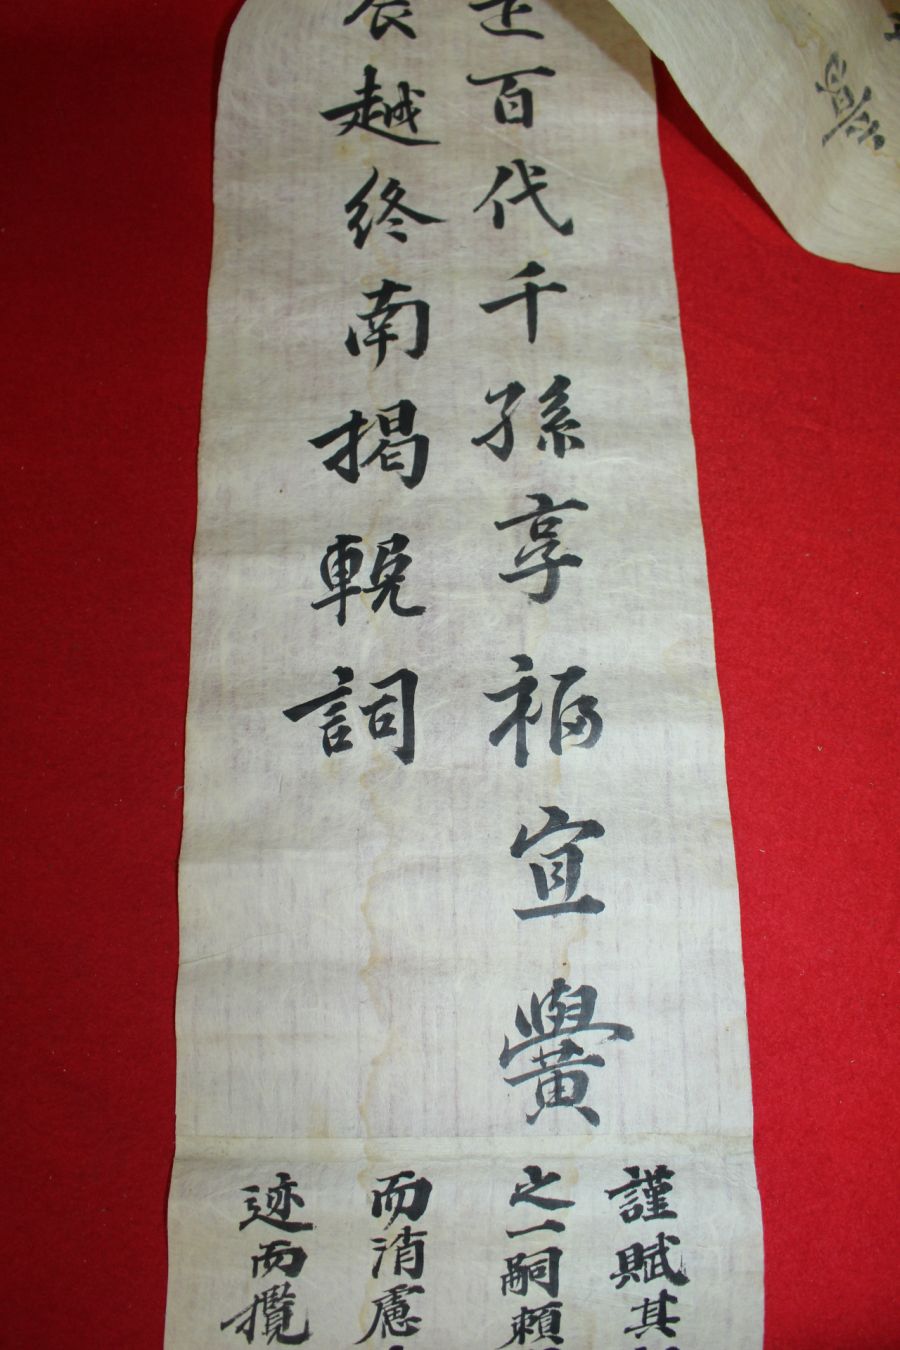 百代千孫享福宣黌
越終南揭輓詞
謹賦其
之一嗣賴
而消慮
迹而攬